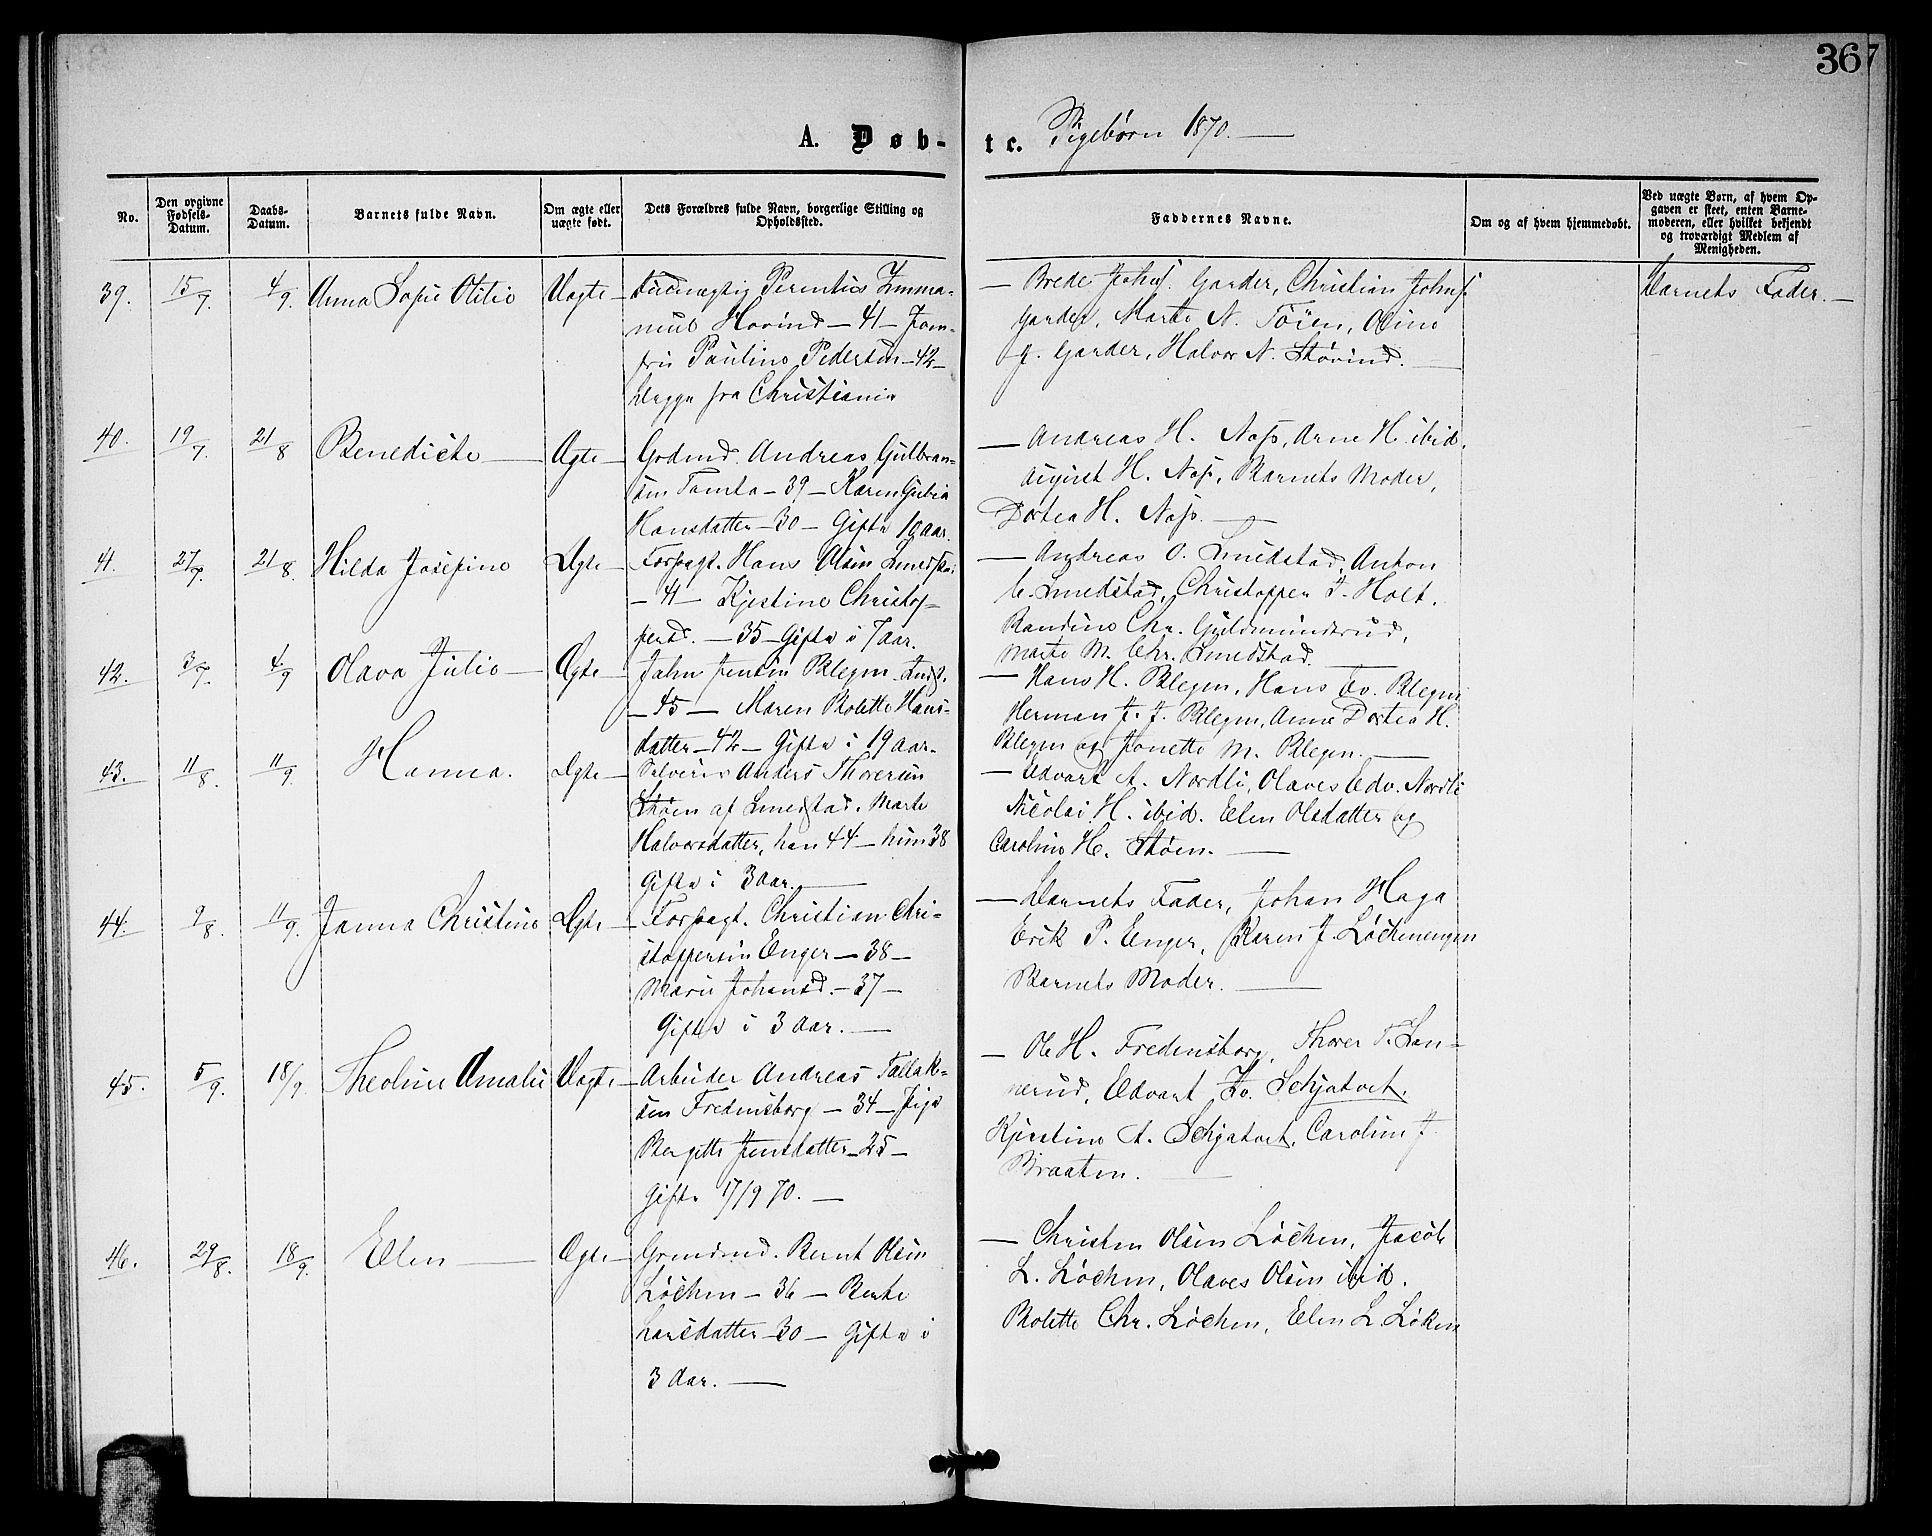 367
A. Døb-
te. Pigebørn 1870.
No.
Den opgivne Fødsels-Datum.
Daabs-Datum.
Barnets fulde Navn.
Om ægte eller uægte født.
Dets Forældres fulde Navn, borgerlige Stilling og Opholdssted.
Faddernes Navne.
Om og af hvem hjemmedøbt.
Ved uægte Børn, af hvem Opgaven er skeet, enten Barnemoderen, eller hvilket bekjendt og troværdigt Medlem af Menigheden.
39. 15/7. 4/9. Anna Sofie Otilie Uægte – Emma-
nuel Hovind – 41 – Jom-
fru Pauline Pedersen – 42 –
begge fra Christiania
– Brede Johns. Garder, Christian Johns.
Garder, Marte N. Töien, Oline
J. Garder, Halvor N. Hovind. –
Barnets Fader. –
40. 19/7. 21/8 Benedicte – Ægte – Grdmd. Andreas Gulbran-
sen Tomta – 39 – Karen Gubia
Hansdatter – 30 – Gifte 10 aar.
– Andreas H. Næss, Arne H. ibid.
August H. Næss, Barnets Moder,
Dortea H. Næss. –
41. 27/7. 21/8. Hilda Josefine Ægte – Forpagt. Hans Olsen Smedstad
– 41 – Kjestine Christof-
fersd. – 35 – Gifte i 7 aar.
– Andreas O. Smedstad, Anton
C. Smedstad, Christoffer J. Holt.
Randine Chr. Guldmundsrud,
Marte M. Chr. Smedstad. –
42. 3/7. 4/9 Olava Julie – Ægte – John Jensen Blegen
– 45 – Maren Bolette Hans-
datter – 42 – Gifte i 19 Aar.
– Hans H. Blegen, Hans Ev. Blegen
Herman J. J. Blegen, Anne Dortea H.
Blegen og Jonette M. Blegen. –
43. 11/8. 11/9. Hanna. Ægte – Selveier Anders Thoresen
Støen af Smedstad, Marte
Halvorsdatter, han 44 – hun 38
Gifte i 3 aar. –
– Edvart A. Nordli, Olaves Edv. Nordli
Nicolai H. ibid. Elen Olsdatter og
Caroline H. Støen. –
44. 9/8. 11/9. Janna Christine Ægte – Forpagt. Christian Chri-
stoffersen Enger – 38 –
Marie Johansd. – 37 –
Gifte i 3 Aar. –
– Barnets Fader, Johan Haga
Erik P. Enger, Karen J. Löchenengen
Barnets Moder. –
45. 5/9. 18/9. Theoline Amalie Uægte – Arbeider Andreas Tallak-
sen Fredensborg – 34 – Pige
Bergitte Jensdatter – 25 –
Gifte 17/9 70. –
– Ole H. Fredensborg, Thorer T. Lan-
nerud, Edvart Ev. Schjatvet.
Kjerstine A. Schjatvet, Caroline J.
Braaten. –
46. 29/8. 18/9. Elen – Ægte – Grmdmd. Bernt Olsen
Löchen – 36 – Berte
Larsdatter – 30 – Gifte i
3 Aar. –
– Christen Olsen Löchen, Jacob
L. Löchen, Olaves Olsen ibid.
Bolette Chr. Löchen, Elen L. Löken